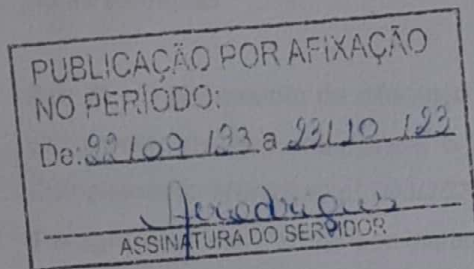 PUBLICAÇÃO POR AFIXAÇÃO
NO PERÍODO:
De: 22/09/23 a 23/10/23
ASSINATURA DO SERVIDOR